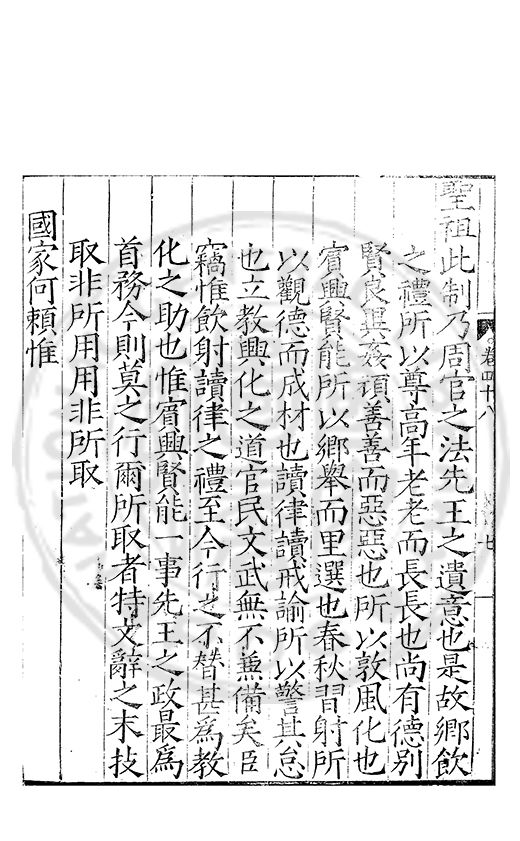 聖祖此制乃周官之法先王之遺意也是故鄉飲
之禮所以尊高年老老而長長也尚有德別
賢良異姦頑善善而惡惡也所以敦風化也
賓興賢能所以鄉舉而里選也春秋習射所
以觀德而成材也讀律讀戒諭所以警其怠
也立教興化之道官民文武無不兼備矣臣
竊惟飲射讀律之禮至今行之不替甚爲教
化之助也惟賓興賢能一事先王之政最爲
首務今則莫之行爾所取者特文辭之末技
取非所用用非所取
國家何賴惟
卷四十八
七